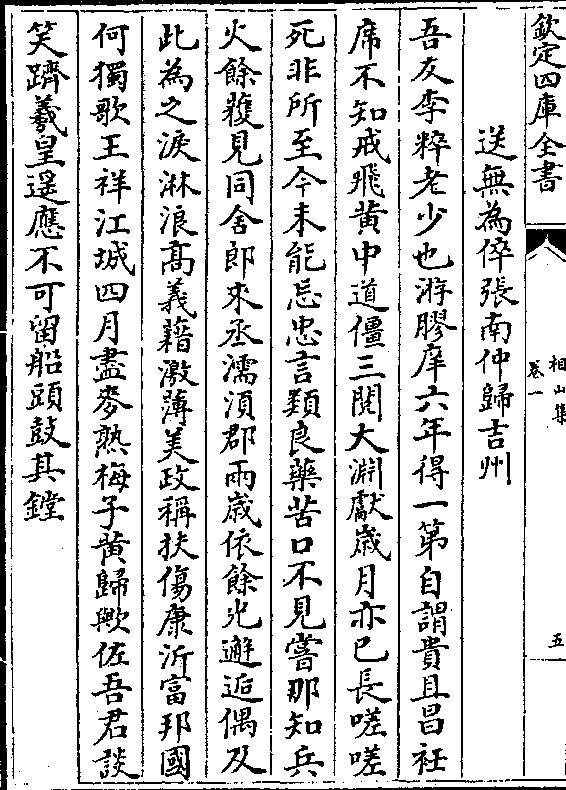 欽定四庫全書
相山集
卷一
五
送無為倅張南仲歸吉州
吾友李粹老少也游膠庠六年得一第自謂貴且昌衽
席不知戒飛黄中道僵三閲大淵獻歳月亦已長嗟嗟
死非所至今未能忘忠言類良藥苦口不見嘗那知兵
火餘獲見同舍郎來丞濡湏郡兩歳依餘光邂逅偶及
此為之涙淋浪髙義藉激薄美政稱扶傷康沂富邦國
何獨歌王祥江城四月盡麥熟梅子黄歸歟佐吾君談
笑躋羲皇遥應不可留船頭鼓其鏜